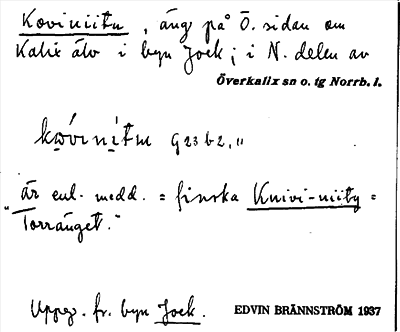 Koviniitu, äng på Ö. sidan om
Kalix älv i byn Jock; i N. delen av
Överkalix sn o. tg Norrb. l.
kǫ́vinìtm G 23 b 2, 11
"är enl. medd. = finska Knivi-niity =
Torränget."
Uppg. fr. byn Jock.
EDVIN BRÄNNSTRÖM 1937